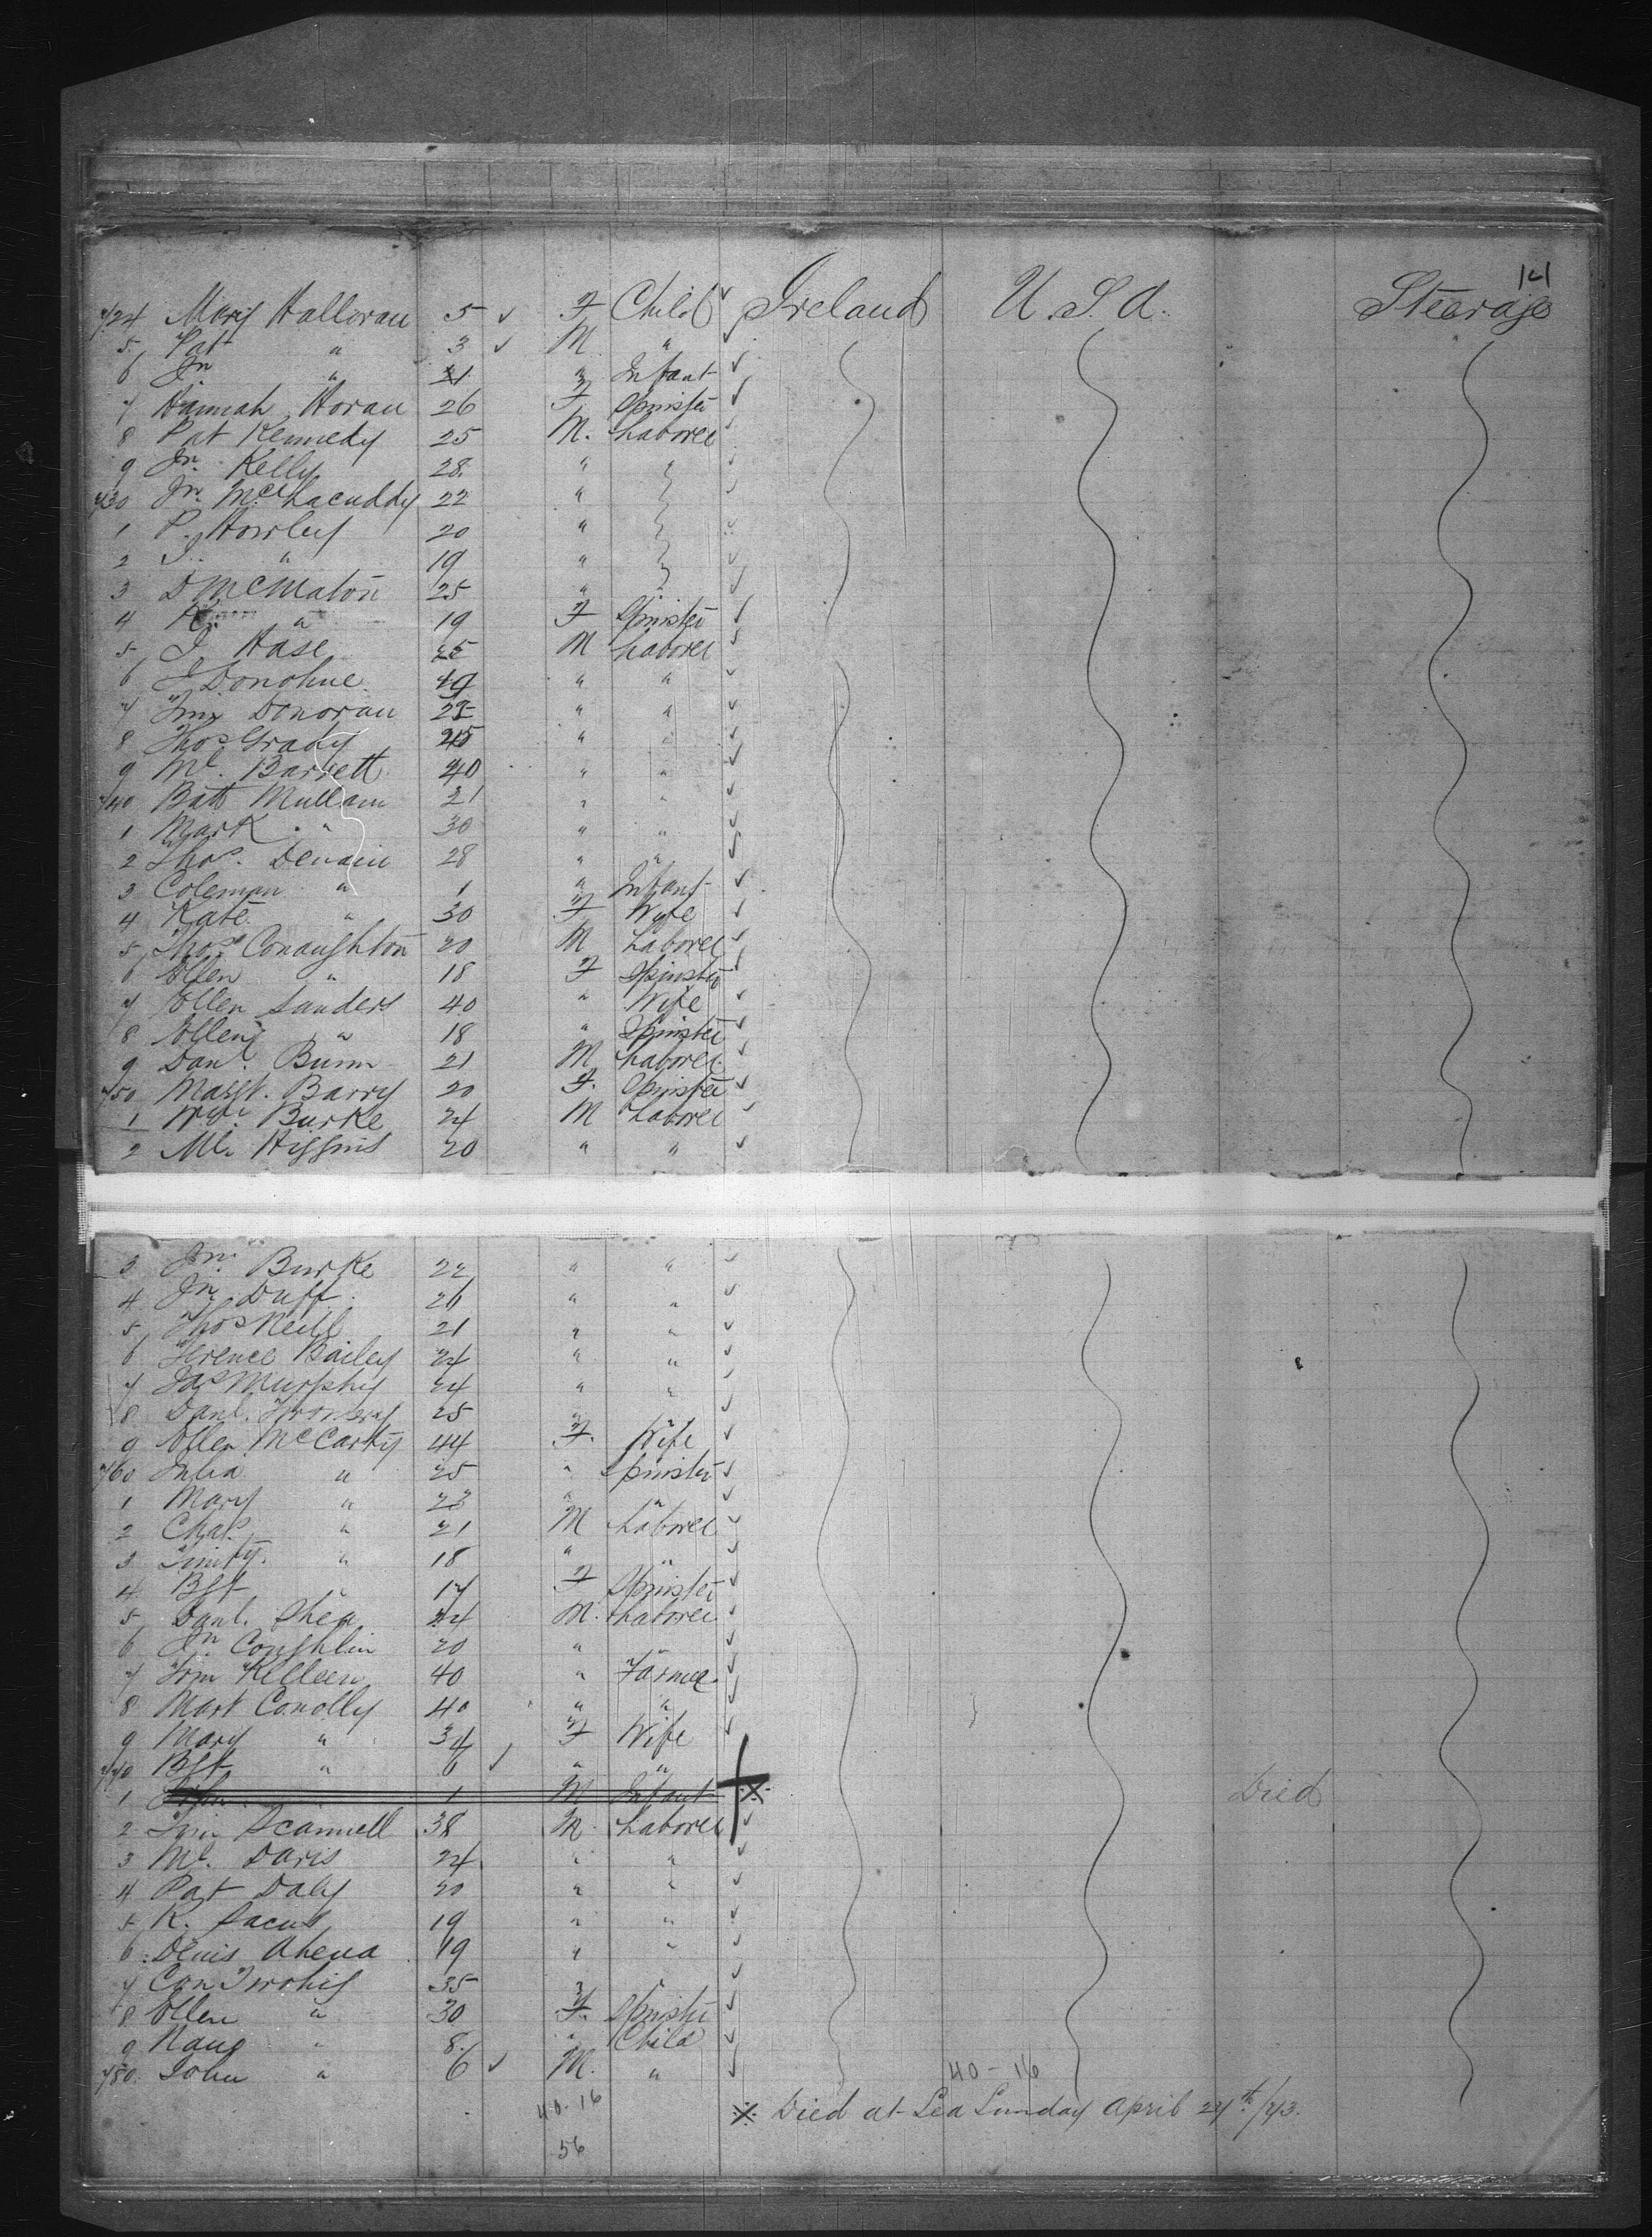 141
724 Mary Halloran 5 ✓ F Child ✓ Ireland U.S.A. Steerage
5 Pat " 3 ✓ M " ✓
6 Jn " 1 " Infant ✓
7 Hannah Horan 26 F Spinster ✓
8 Pat Kennedy 25 M. Laborer ✓
9 Jn. Kelly 28. " " ✓
730 Jn. 22 " ✓
1 P. Howley 20 " ✓
2 J. " 19 " ✓
3 D McMaton 25 " " ✓
4 " 19 F Spinster ✓
5 J. Hase 25 M Laborer ✓
6 J Donohue 49 " " ✓
7 Donovan 25 " " ✓
8 Thos Grady 45 " " ✓
9 Ml. Barrett 40 " " ✓
740 Batt Mullam 21 " " ✓
1 Mark " 30 " " ✓
2 Thos. 28 " " ✓
3 Coleman " 1 " Infant ✓
4 Kate " 30 F Wife ✓
5 Thos Conaughton 20 M Laborer ✓
6 Ellen " 18 F Spinster ✓
7 Ellen Sanders 40 " Wife ✓
8 Ellen " 18 " Spinster ✓
9 Danl. Bunn 21 M Laborer ✓
750 Margt. Barry 20 F. Spinster ✓
1 Wm. Burke 24 M Laborer ✓
2 Ml. Higgins 20 " " ✓
3 Jn. Burke 22 " " ✓
4 Jn. Duff 26 " " ✓
5 Thos Neill 21 " " ✓
6 Terence Bailey 24 " " ✓
7 Jas Murphy 24 " " ✓
8 Danl. 25 " " ✓
9 Ellen McCarty 44 F. Wife ✓
760 Julia " 25 " Spinster ✓
1 Mary " 23 " " ✓
2 Chas. " 21 M Laborer ✓
3 " 18 " " ✓
4 Bgt " 17 F Spinster ✓
5 Danl. Shea 24 M. Laborer ✓
6 Jn Coughlin 20 " " ✓
7 Killeen 40 " Farmer ✓
8 Mart Conolly 40 " " ✓
9 Mary " 34 F Wife ✓
770 Bgt " 6 ✓ " " ✓
1 John 1 M Infant ※ Died
2 Tim Scannell 38 M. Laborer ✓
3 Ml. Davis 24 " " ✓
4 Pat Daly 20 " " ✓
5 R. 19 " " ✓
6 Denis Ahena 19 " " ✓
7 Con Twohig 35 " " ✓
8 Ellen " 30 F. Spinster ✓
9 " 8 " Child ✓
780 John " 6 ✓ M. " ✓
40-16 40-16
※ Died at Sea Sunday April 27th /73.
56